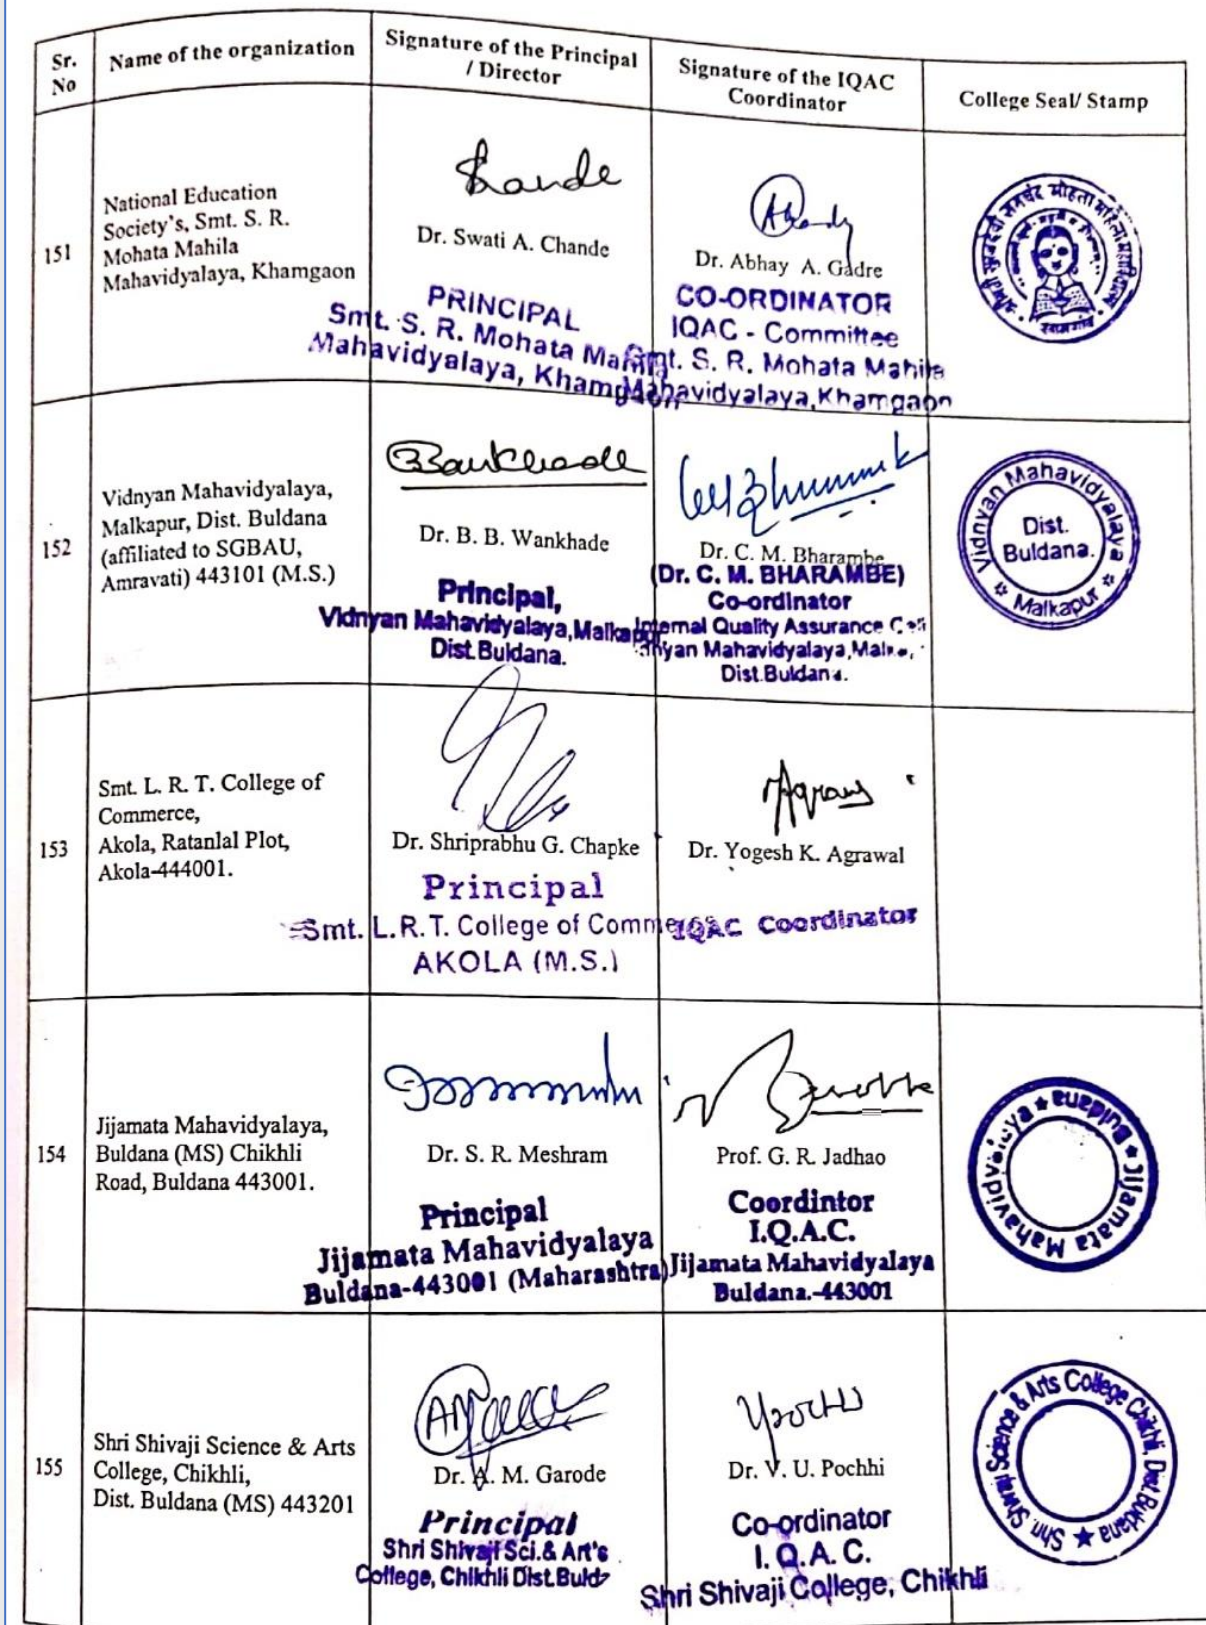 Sr.
No
Name of the organization
Signature of the Principal
/ Director
Signature of the IQAC
Coordinator
College Seal/ Stamp
151
National Education
Society's, Smt. S. R.
Mohata Mahila
Mahavidyalaya, Khamgaon
Chande
Dr. Swati A. Chande
PRINCIPAL
Smt. S. R. Mohata
Mahavidyalaya,
Dr. Abhay A. Gadre
CO-ORDINATOR
IQAC - Committee
Smt. S. R. Mohata Mahila
Mahavidyalaya, Khamgaon
152
Vidnyan Mahavidyalaya,
Malkapur, Dist. Buldana
(affiliated to SGBAU,
Amravati) 443101 (M.S.)
BBWankhade
Dr. B. B. Wankhade
Principal,
Vidnyan Mahavidyalaya, Malkapur
Dist.Buldana.
Dr. C. M. Bharambe
(Dr. C. M. BHARAMBE)
Co-ordinator
Internal Quality Assurance Cell
Mahavidyalaya,
Dist.Buldana.
Vidnyan Mahavidyalaya
Dist.
Buldana.
Malkapur
153
Smt. L. R. T. College of
Commerce,
Akola, Ratanlal Plot,
Akola-444001.
Dr. Shriprabhu G. Chapke
Principal
Smt. L.R.T. College of
AKOLA (M.S.)
Dr. Yogesh K. Agrawal
IQAC Coordinator
154
Jijamata Mahavidyalaya,
Buldana (MS) Chikhli
Road, Buldana 443001.
Dr. S. R. Meshram
Principal
Jijamata Mahavidyalaya
Buldana-443001 (Maharashtra)
Prof. G. R. Jadhao
Coordintor
I.Q.A.C.
Jijamata Mahavidyalaya
Buldana.-443001
Jijamata Mahavidyalaya ★ Buldana ★
155
Shri Shivaji Science & Arts
College, Chikhli,
Dist. Buldana (MS) 443201
Dr. A. M. Garode
Principal
Shri Shivaji Sci.& Art's
College, Chikhli Dist.Buld
Pochhi
Dr. V. U. Pochhi
Co-ordinator
I. Q. A. C.
Shri Shivaji College, Chikhli
Shri. Shivaji Science & Arts College Chikhli, Dist.Buldana ★